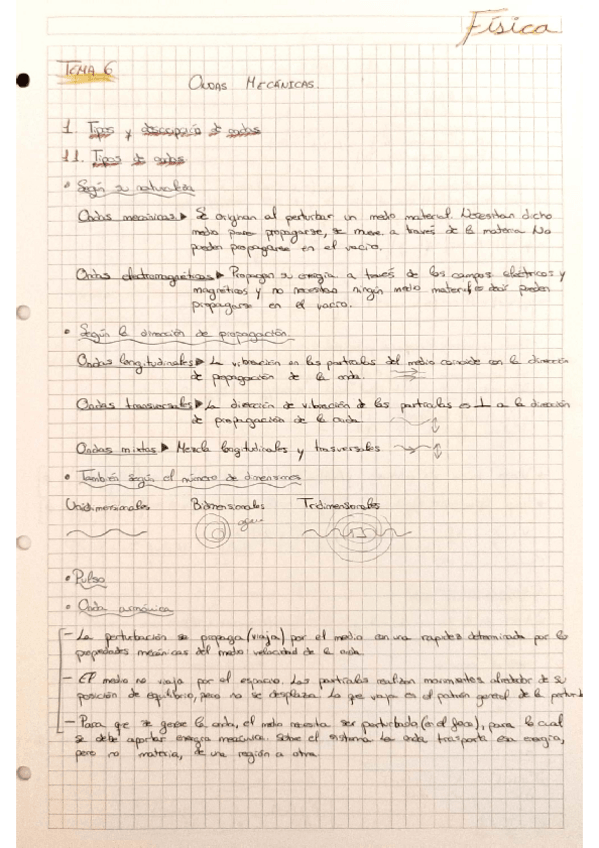 Física
TEMA 6
ONDAS MECÁNICAS.
1. Tipos y descripción de ondas
1.1. Tipos de ondas
• Según su naturaleza
Ondas mecánicas ▶ Se originan al perturbar un medo material. Necesitan dicho
medio para propagarse, se mueve a través de la materia. No
pueden propagarse en el vacío.
Ondas electromagnéticas ▶ Propagan su energía a través de los campos eléctricos y
magnéticos y no necesitan ningún medio material es decir pueden
propagarse en el vacío.
• Según la dirección de propagación.
Ondas longitudinales ▶ La vibración en las partículas del medio coincide con la dirección
de propagación de la onda.
Ondas transversales ▶ La dirección de vibración de las partículas es ⊥ a la dirección
de propagación de la onda
Ondas mixtas ▶ Mezcla longitudicales y trasversales
• También según el número de dimensiones
Unidimensionales Bidimensionales Tridimensionales
• Pulso
• Onda armónica
- La perturbación se propaga (viaja) por el medio con una rapidez determinada por las
propiedades mecánicas del medio: velocidad de la onda.
- El medio no viaja por el espacio. Las partículas realizan movimientos alrededor de su
posición de equilibrio, pero no se desplaza. Lo que viaja es el patrón general de la perturb
- Para que se genere la onda, el medo necesita ser perturbado (en el foco), para lo cual
se debe aportar energía mecánica. Sobre el sistema la onda trasporta esa energía,
pero no materia, de una región a otra.